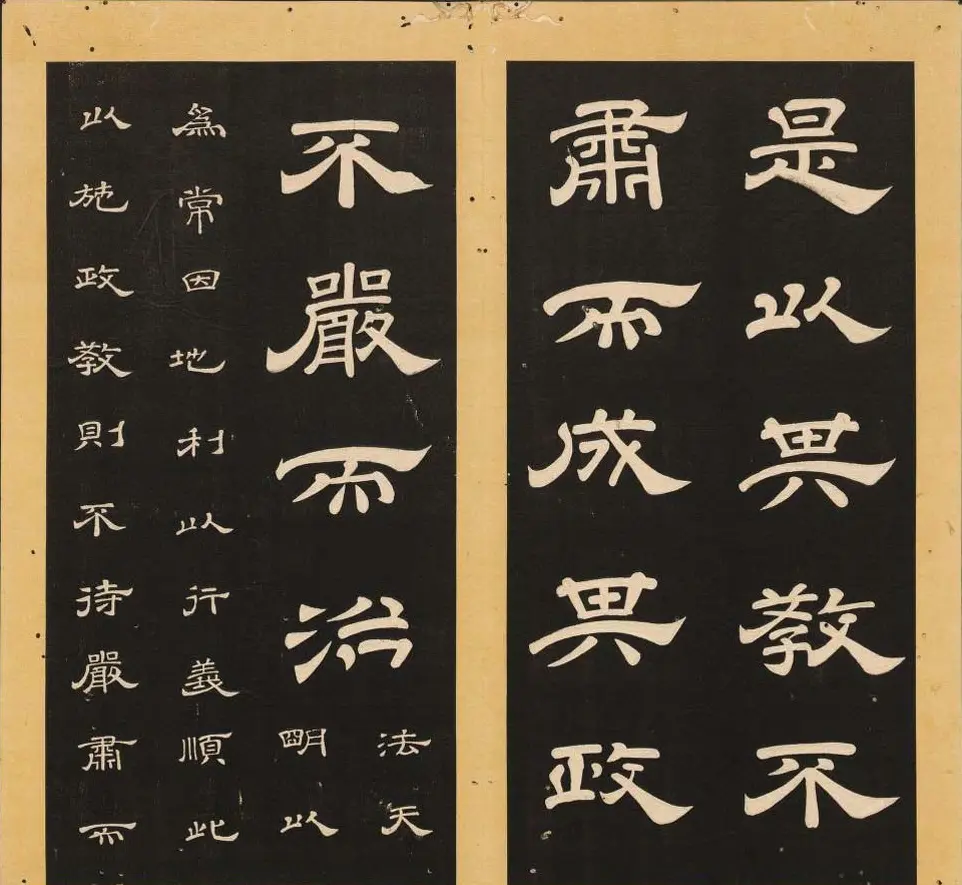 是以其教不
肅而成其政
不嚴而治
法天
明以
爲常因地利以行義順此
以施政教則不待嚴肅而